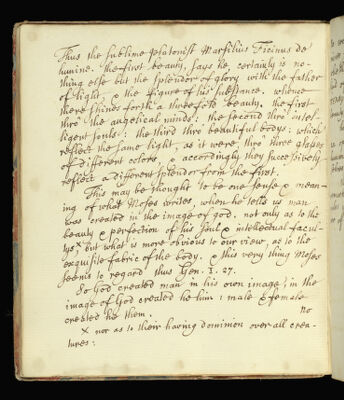 Thus the sublime platonist Marsilius Ficinus de
lumine. the first beauty, says he, certainly is no-
thing else but the splendor of glory with the father
of light, & the figure of his substance. whence
there shines forth a threefold beauty. the first
thro' the angelical minds: the second thro' intel-
ligent souls: the third thro' beautiful bodys: which
reflect the same light, as it were, thro' three glasses
of different colors, & accordingly they successively
reflect a different splendor from the first.
This may be thought to be one sense & mean-
ing of what Moses writes, when he tells us man
was created in the image of god, not only as to the
beauty & perfection of his soul & intellectual facul-
tys x but what is more obvious to our view, as to the
exquisite fabric of the body. & this very thing Moses
seems to regard thus Gen. I. 27.
So God created man in his own image, in the
image of God created he him; male & female
created he them.
no
x nor as to their having dominion over all crea-
tures: